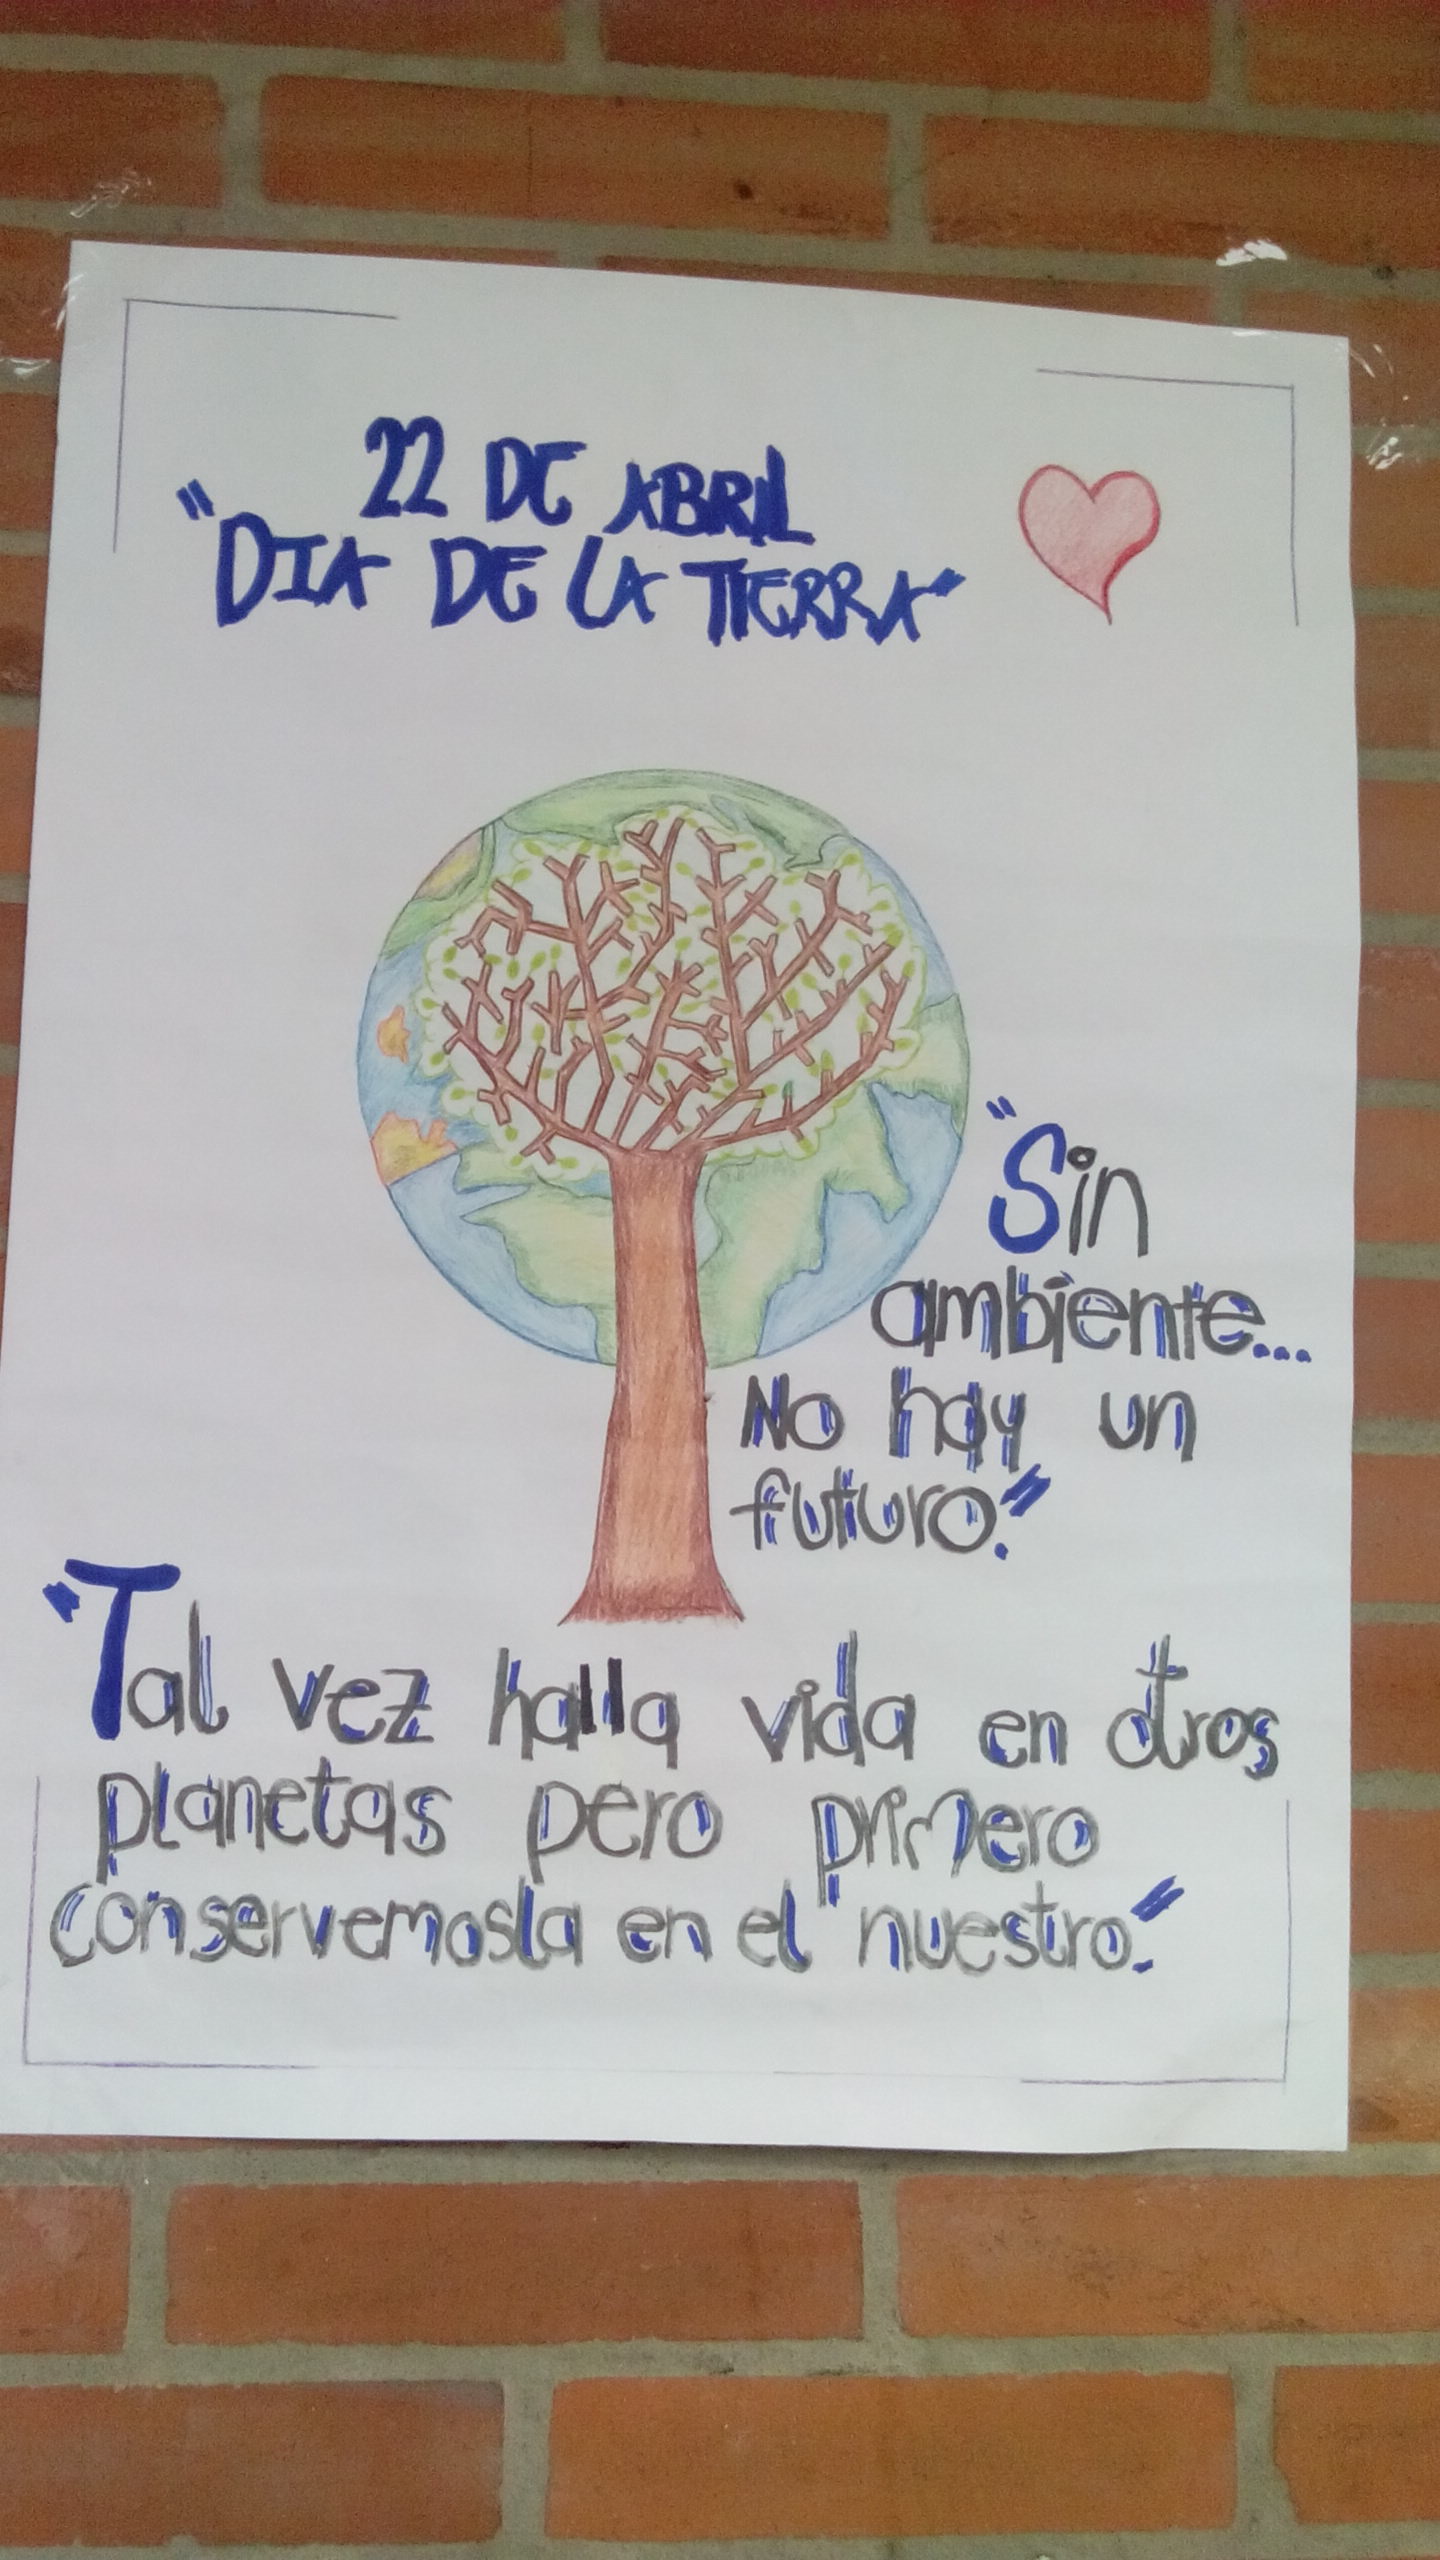 22 DE ABRIL
"DIA DE LA TIERRA"
"Sin
ambiente...
No hay un
futuro."
"Tal vez halla vida en otros
planetas pero primero
conservemosla en el "nuestro."